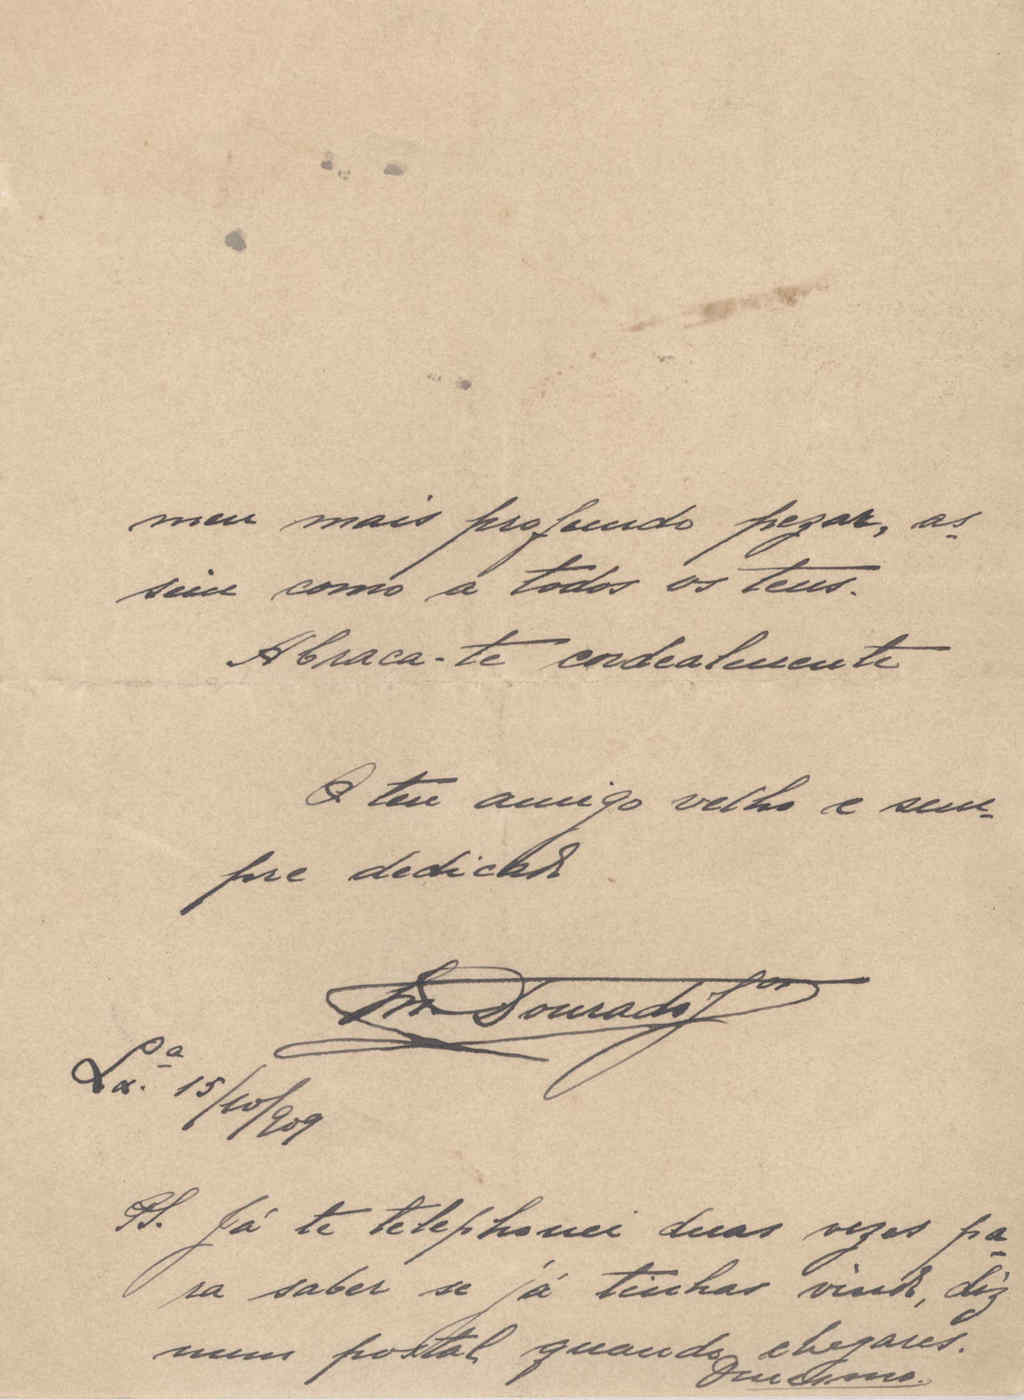 meu mais profundo pezar, as-
sim como a todos os teus.
Abraca-te cordealmente
O teu amigo velho e sem-
pre dedicado
Dourado Jor
Lxa. 15/10/909
PS. Já te telephonei duas vezes pa-
ra saber se já tinhas vindo, diz
num postal quando chegares.